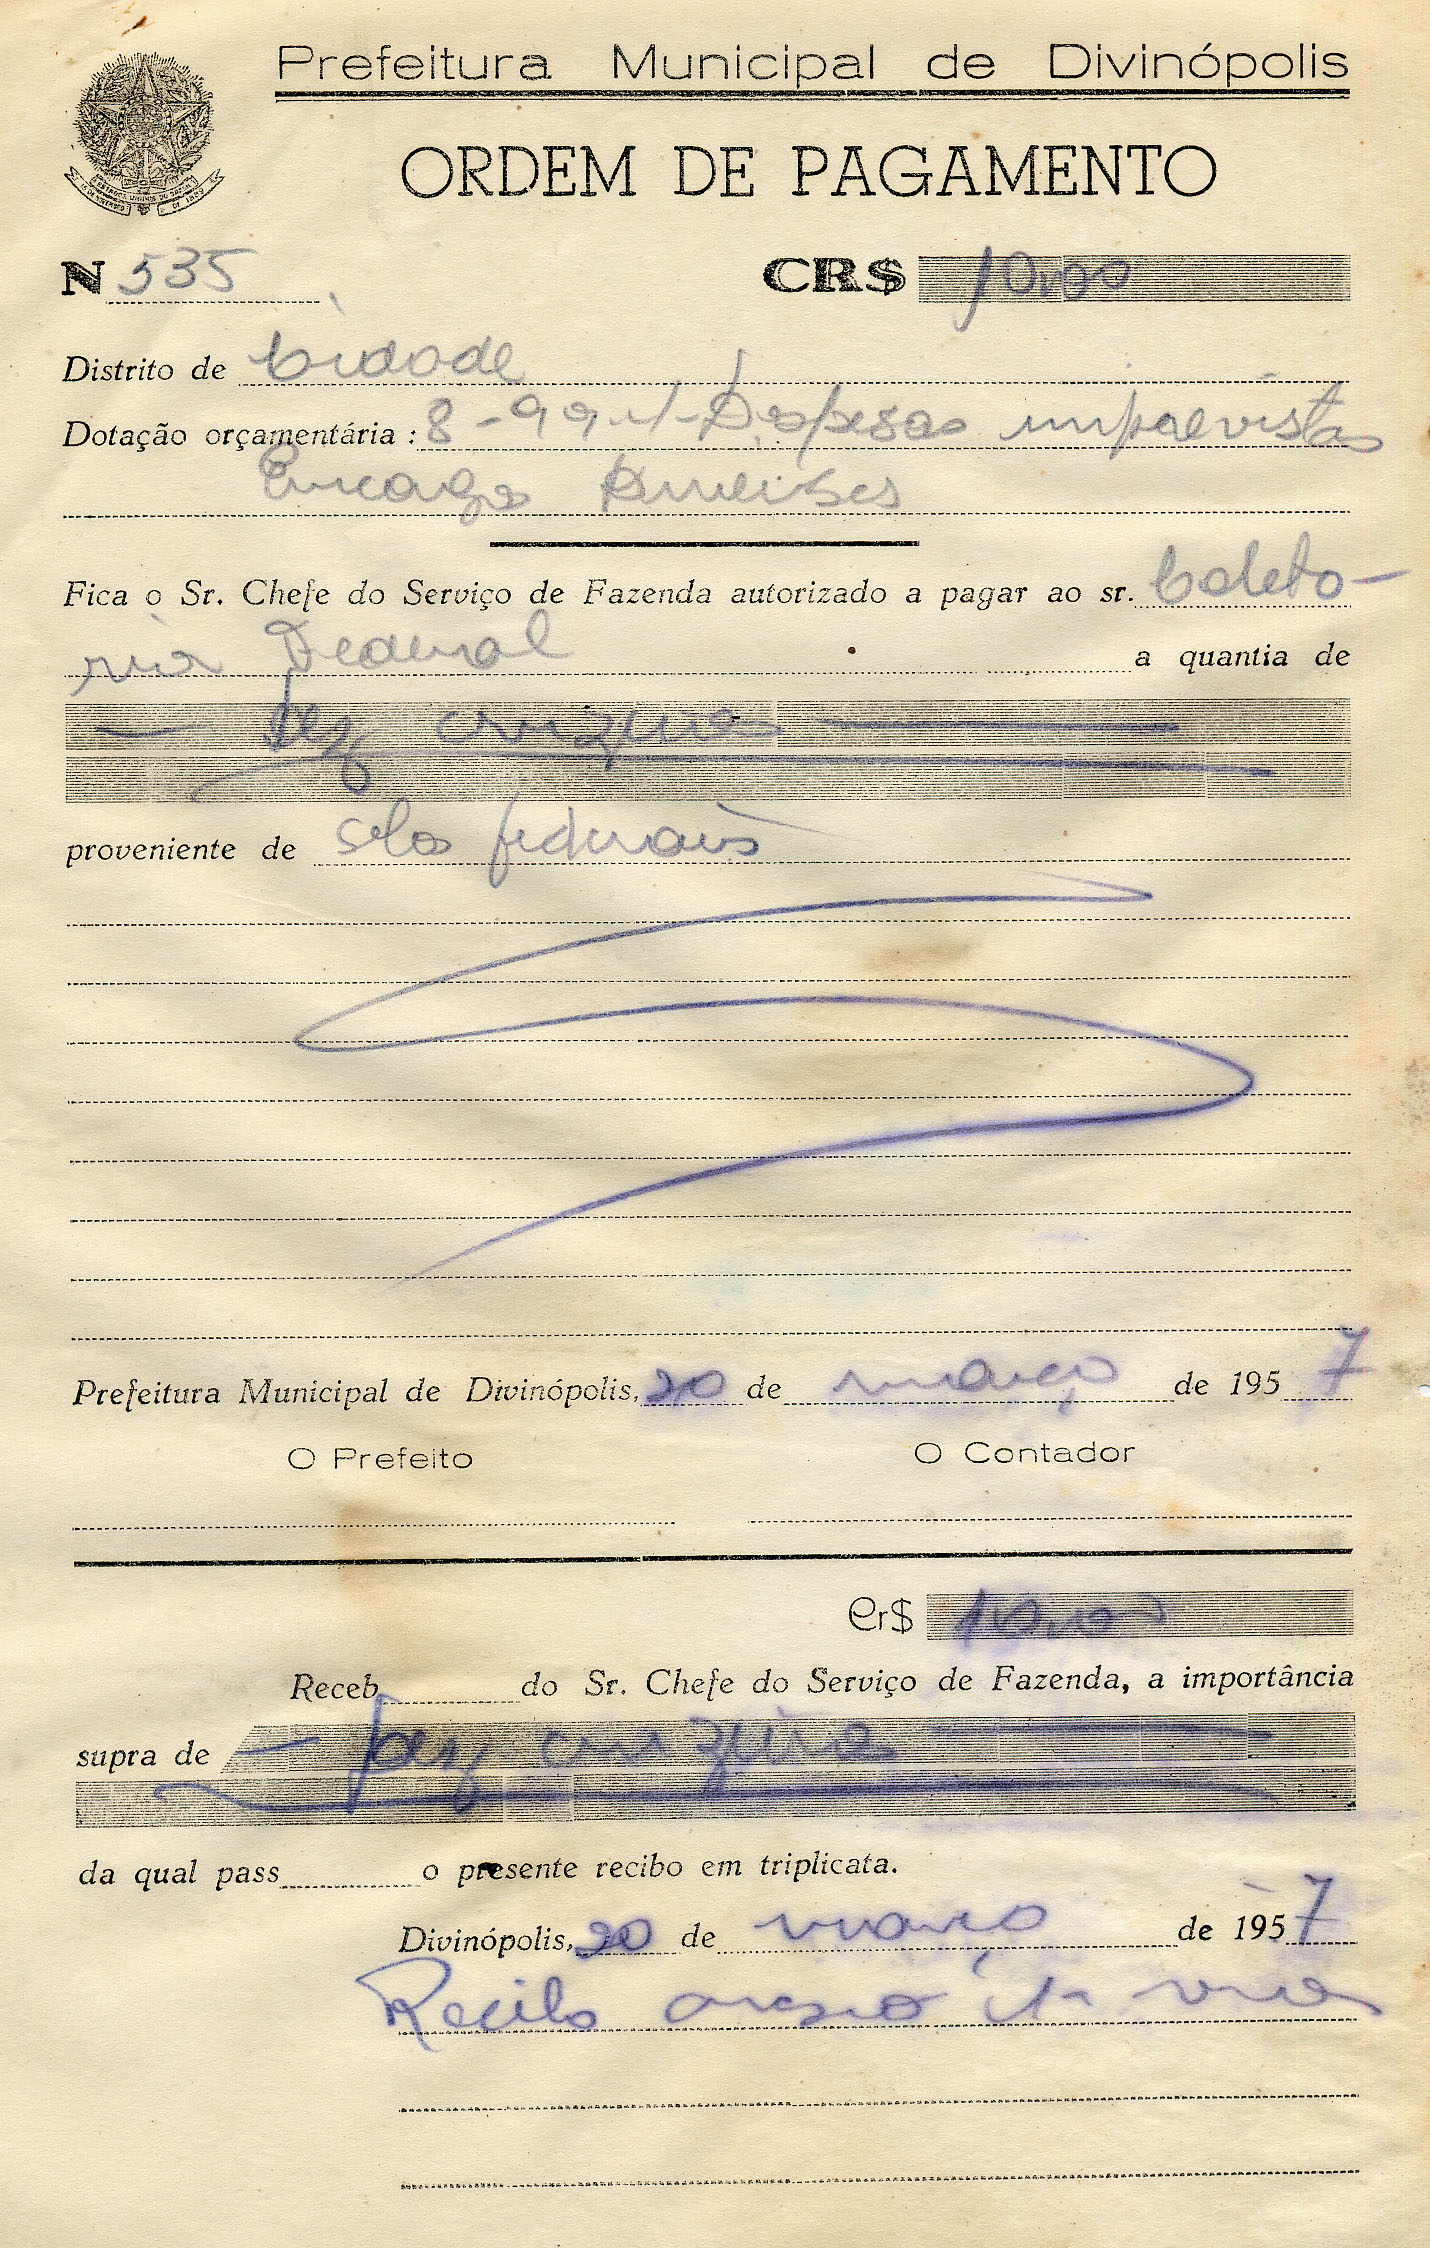 Prefeitura Municipal de Divinópolis
ORDEM DE PAGAMENTO
N 535 CR$ 10,00
Distrito de Cidade
Dotação orçamentária: 8-99-1-Despesas imprevistas
Encargos Diversos
Fica o Sr. Chefe do Serviço de Fazenda autorizado a pagar ao sr. Coleto-
ria Federal a quantia de
— Dez cruzeiros —
proveniente de selos federais
Prefeitura Municipal de Divinópolis, 20 de março de 1957
O Prefeito O Contador
Cr$ 10,00
Receb do Sr. Chefe do Serviço de Fazenda, a importância
supra de — Dez cruzeiros —
da qual pass o presente recibo em triplicata.
Divinópolis, 20 de março de 1957
Recibo anexo à 1a via